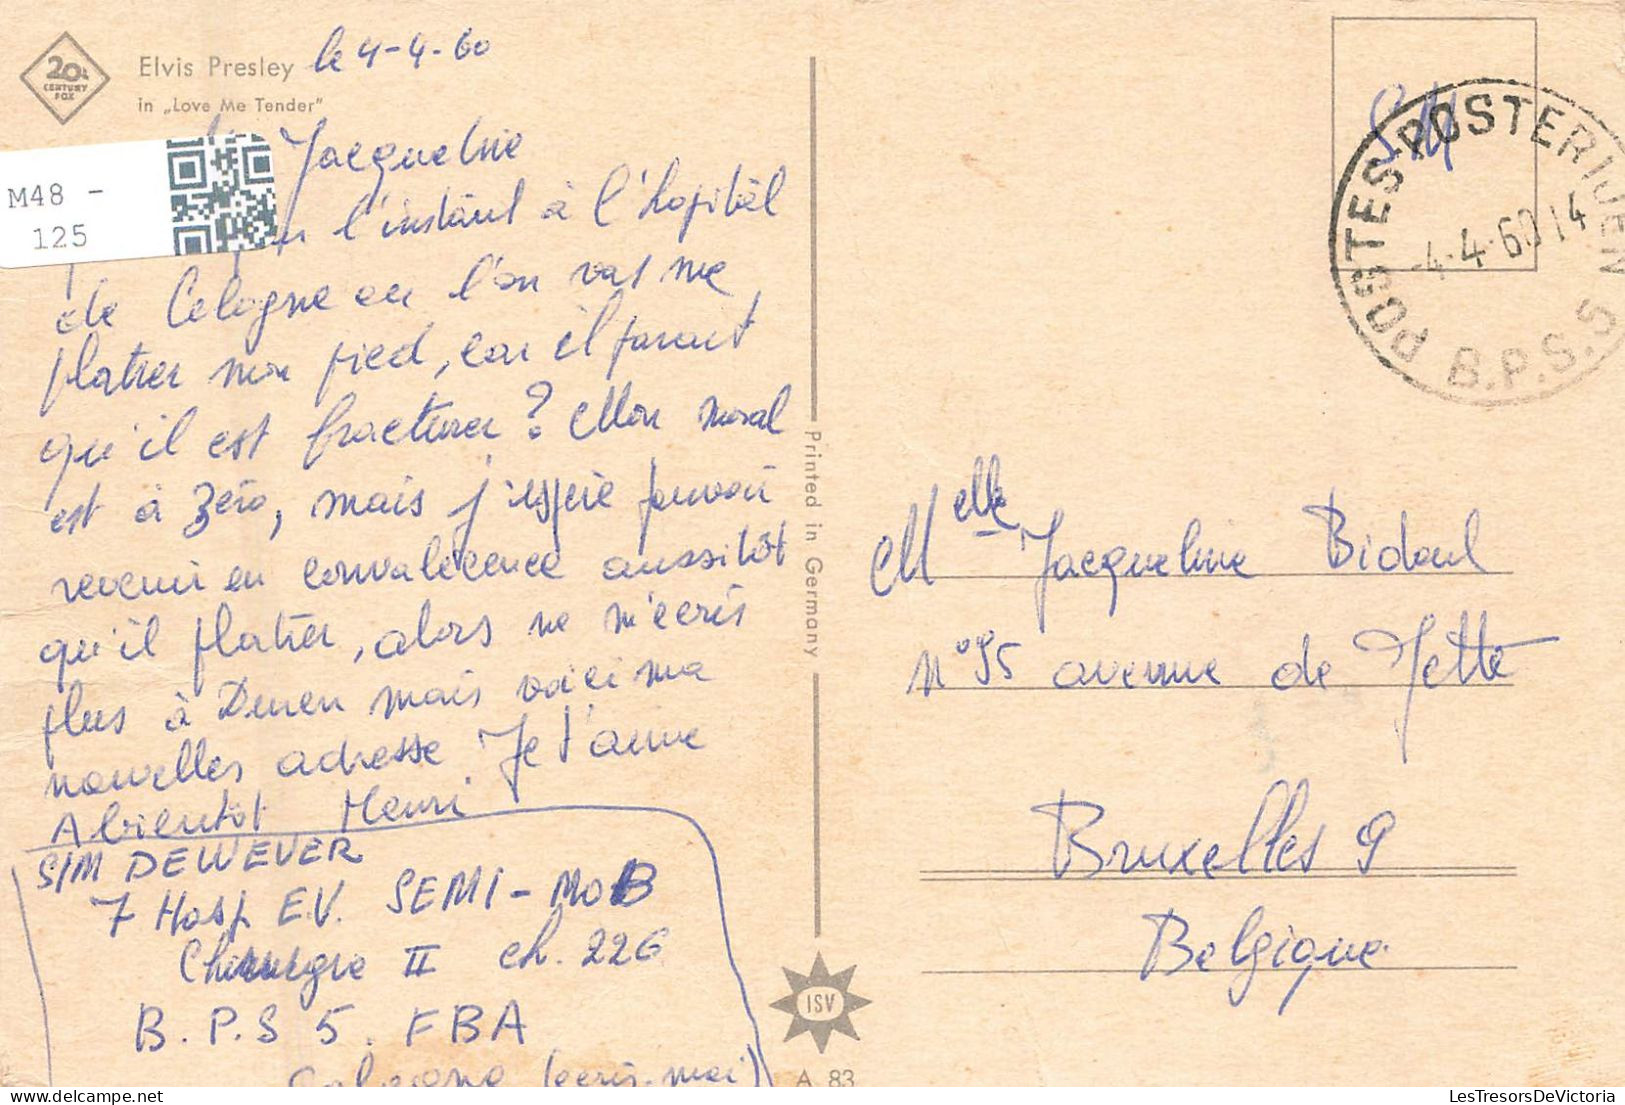 20th
CENTURY
FOX
Elvis Presley
in „Love Me Tender"
le 4-4-60
M48 -
125
Jacqueline
l'instant à l'hopitâl
de Cologne ou l'on vas me
platrer mon pied, car il parait
qu'il est fracturer? Mon moral
est à zéro, mais j'espère pouvoir
revenir en convalécence aussitôt
qu'il platrer, alors ne m'ecris
plus à Duren mais voici ma
nouvelles adresse. Je t'aime
Abientôt Henri
SIM DEWEVER
7 Hosp E.V. SEMI-MOB
Chirurgie II ch. 226
B.P.S 5. FBA
Cologne (ecris-moi)
Printed in Germany
ISV
A 83
SM
POSTES-POSTERIJEN
-4-4-60 14
B.P.S.5
Melle Jacqueline Bidoul
n°95 avenue de Jette
Bruxelles 9
Belgique
LesTresorsDeVictoria.com